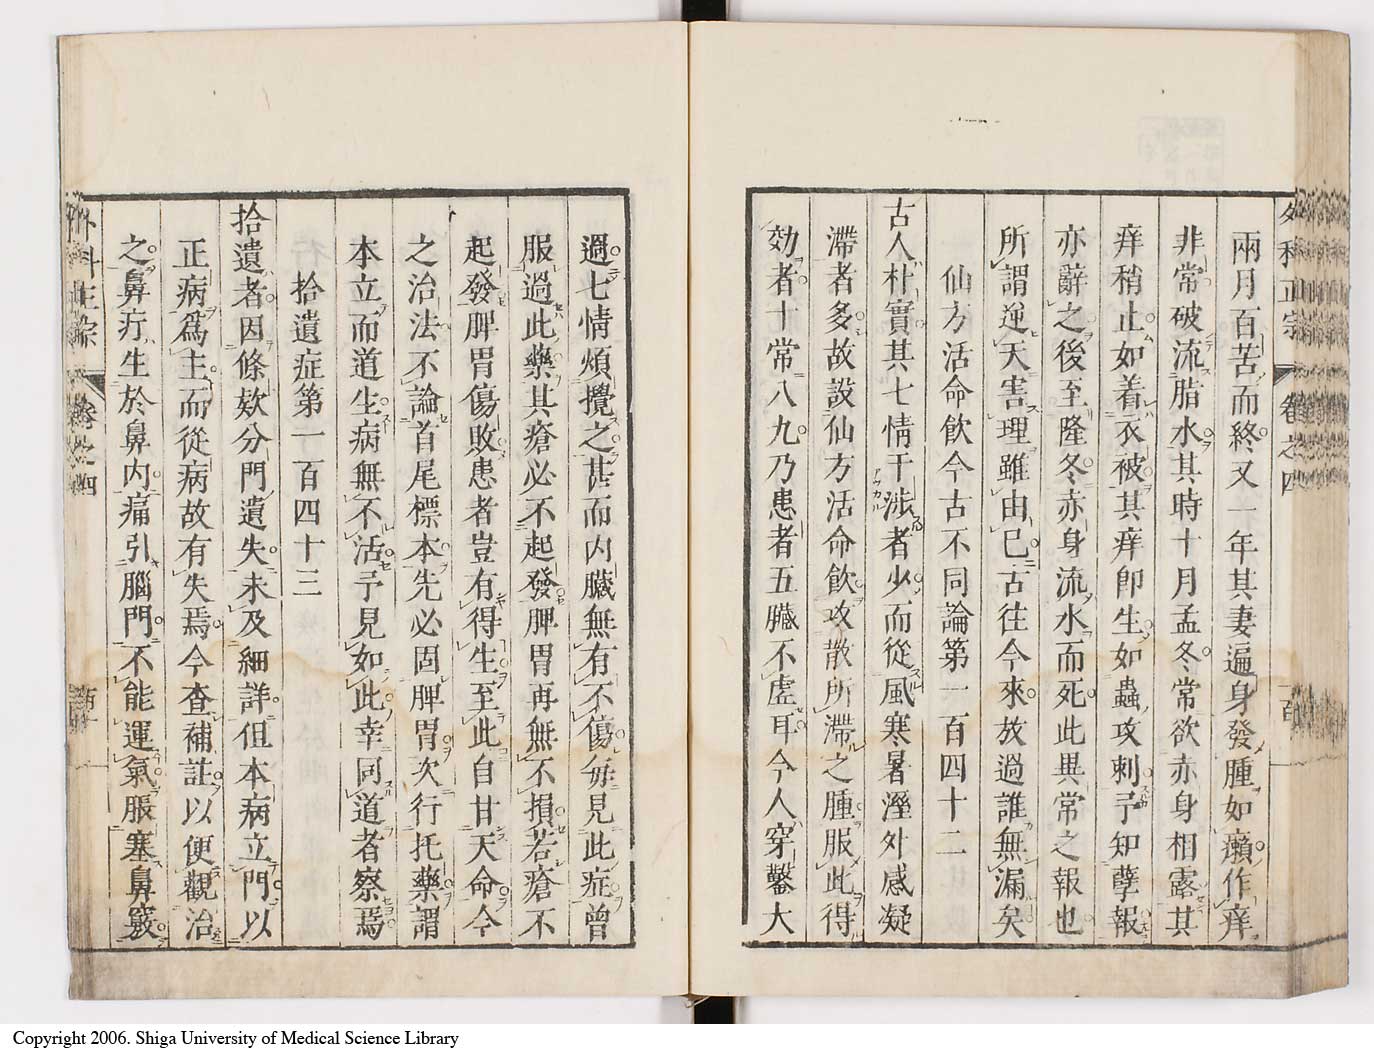 外科正宗 卷之四 一百
兩月百苦而終又一年其妻遍身發腫如癩作痒
非常破流脂水其時十月孟冬常欲赤身相露其
痒稍止如着衣被其痒卽生如蟲攻刺予知孽報
亦辭之後至隆冬赤身流水而死此異常之報也
所謂逆天害理雖由已古往今來放過誰無漏矣
仙方活命飲今古不同論第一百四十二
古人朴實其七情干涉者少而從風寒暑溼外感凝
滯者多故設仙方活命飲攻散所滯之腫服此得
効者十常八九乃患者五臟不虛耳今人穿鑿大
過七情煩攪之甚而內臟無有不傷每見此症曾
服過此藥其瘡必不起發脾胃再無不損若瘡不
起發脾胃傷敗患者豈有得生至此自甘天命今
之治法不論首尾標本先必固脾胃次行托藥謂
本立而道生病無不活予見如此幸同道者察焉
拾遺症第一百四十三
拾遺者因條欵分門遺失未及細詳但本病立門以
正病爲主而從病故有失焉今查補註以便觀治
之鼻疔生於鼻內痛引腦門不能運氣脹塞鼻竅
外科正宗 卷之四
Copyright 2006. Shiga University of Medical Science Library